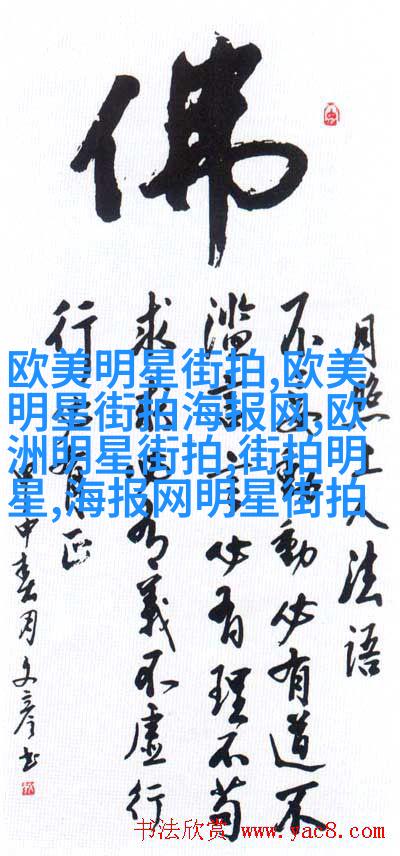 佛
月照上人法語
不妄動動必有道不
言言必有理不苟
求求必有義不虛行
行必有正
申春月文彦书
欧美明星街拍,欧美
明星街拍海报网,欧
洲明星街拍,街拍明
星,海报网明星街拍
书法欣赏 www.yac8.com